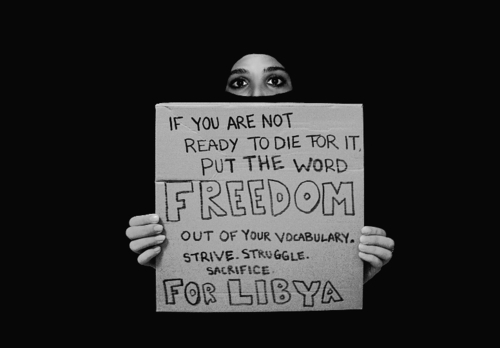 IF YOU ARE NOT
READY TO DIE FOR IT,
PUT THE WORD
FREEDOM
OUT OF YOUR VOCABULARY.
STRIVE. STRUGGLE.
SACRIFICE.
FOR LIBYA